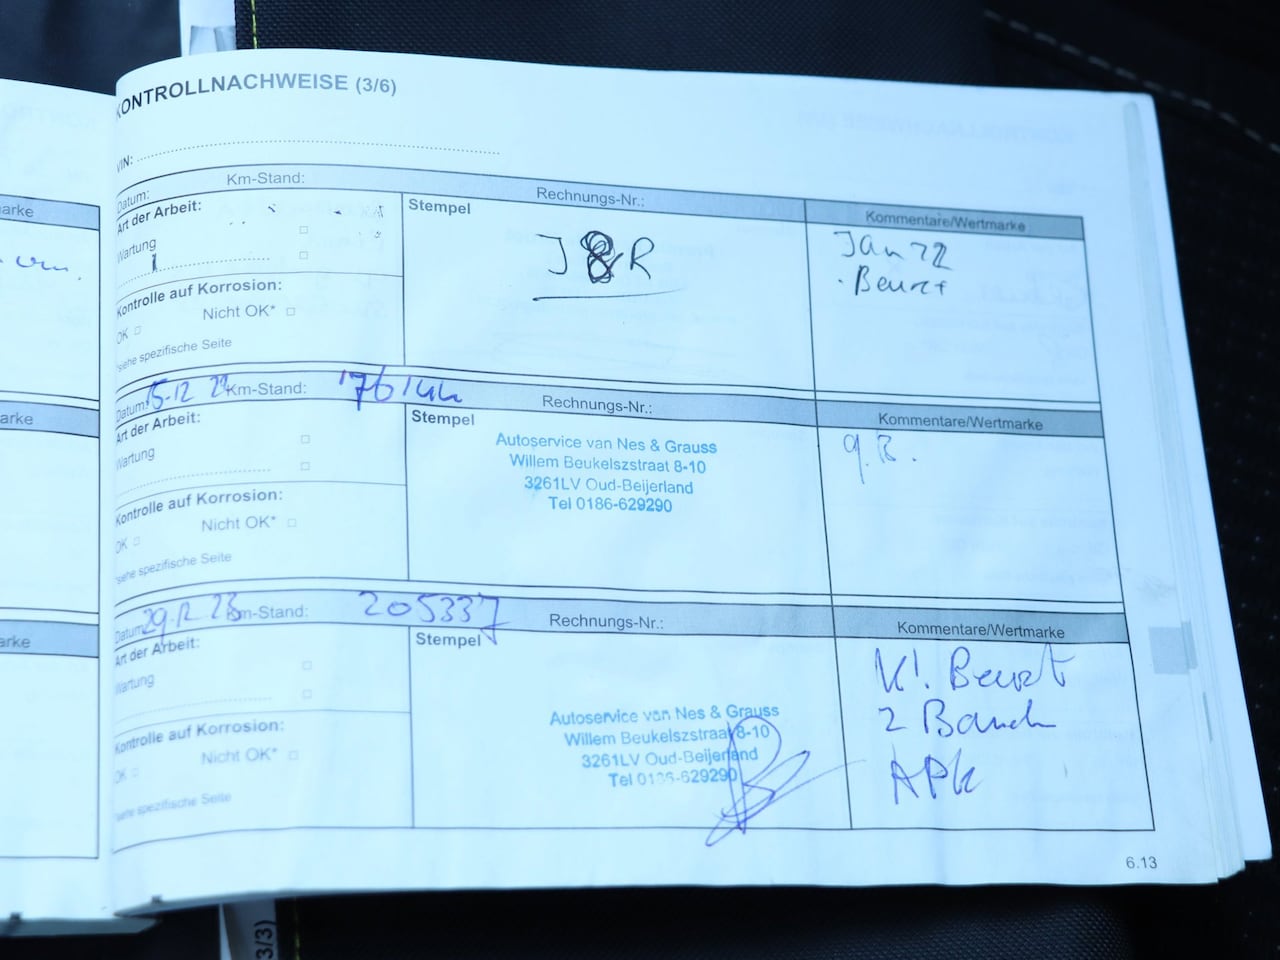 KONTROLLNACHWEISE (3/6)
VIN:
Datum: Km-Stand: Rechnungs-Nr.: Kommentare/Wertmarke
Art der Arbeit:
Wartung
Stempel
J & R
Jan 22
Beurt
Kontrolle auf Korrosion:
Nicht OK*
OK
*siehe spezifische Seite
Datum: 15-12 22 Km-Stand: 176144 Rechnungs-Nr.: Kommentare/Wertmarke
Art der Arbeit:
Wartung
Stempel
Autoservice van Nes & Grauss
Willem Beukelszstraat 8-10
3261LV Oud-Beijerland
Tel 0186-629290
Kontrolle auf Korrosion:
Nicht OK*
OK
*siehe spezifische Seite
Datum: 29-12 23 Km-Stand: 205337 Rechnungs-Nr.: Kommentare/Wertmarke
Art der Arbeit:
Wartung
Stempel
Autoservice van Nes & Grauss
Willem Beukelszstraat 8-10
3261LV Oud-Beijerland
Tel 0186-629290
Kl. Beurt
2 Band
APK
Kontrolle auf Korrosion:
Nicht OK*
OK
*siehe spezifische Seite
6.13
arke
arke
arke
3/3)